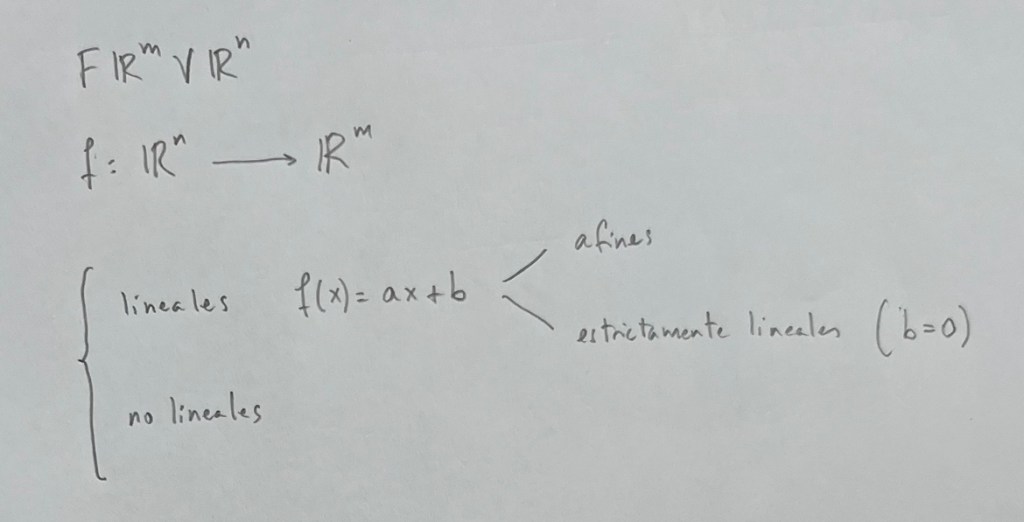 F ℝᵐ V ℝⁿ
f: ℝⁿ ⟶ ℝᵐ
afines
lineales f(x)= ax+b
estrictamente lineales (b=0)
no lineales